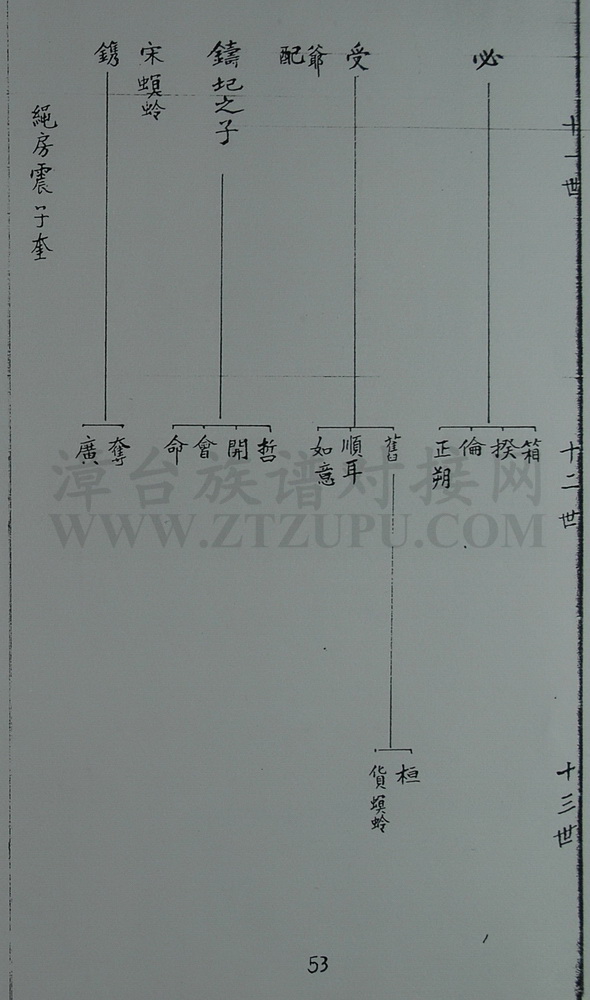 十一世
必
受
配爺
鑄圯之子
宋螟蛉
鐫
繩房震子奎
十二世
箱
揆
倫
正朔
舊
順耳
如意
哲
開
會
命
奪
廣
漳台族谱对接网
WWW.ZTZUPU.COM
十三世
桓
貨螟蛉
53